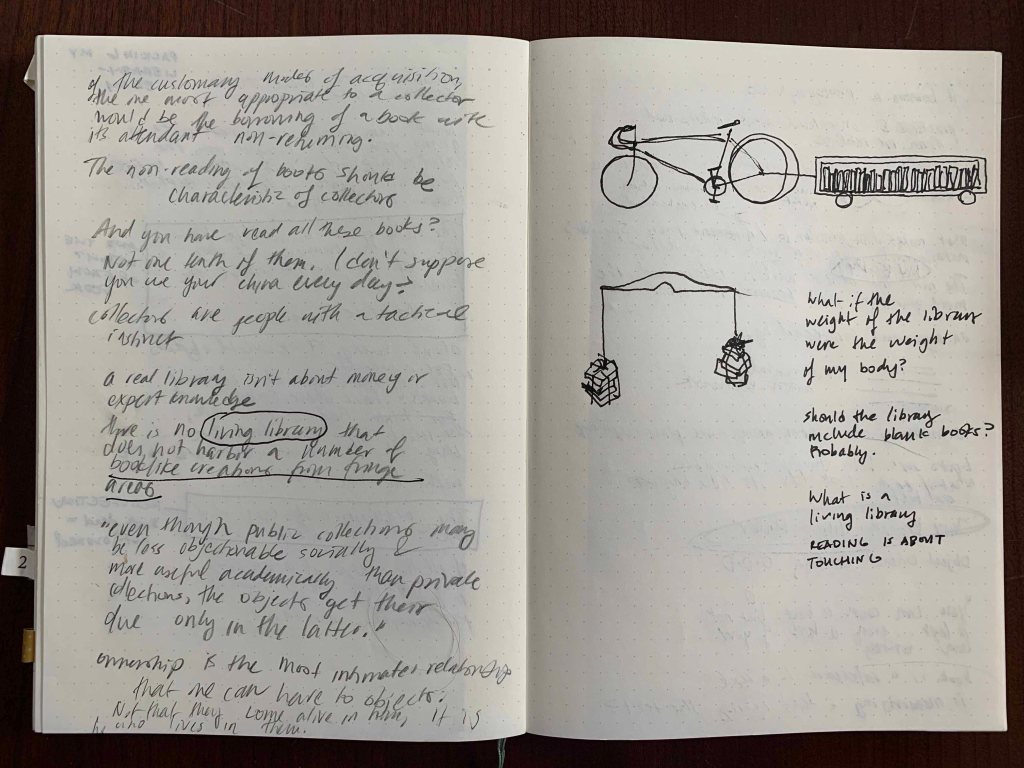 of the customary modes of acquisition,
the one most appropriate to a collector
would be the borrowing of a book with
its attendant non-returning.
The non-reading of books should be
characteristic of collectors
And you have read all these books?
Not one tenth of them. I don't suppose
you use your china every day?
collectors are people with a tactical
instinct
a real library isn't about money or
expert knowledge
there is no living library that
does not harbor a number of
booklike creations from fringe
areas
"even though public collections may
be less objectionable socially &
more useful academically than private
collections, the objects get their
due only in the latter."
ownership is the most intimate relationship
that one can have to objects.
Not that they come alive in him, it is
he who lives in them.
2
What if the
weight of the library
were the weight
of my body?
should the library
include blank books?
Probably.
What is a
living library
READING IS ABOUT
TOUCHING